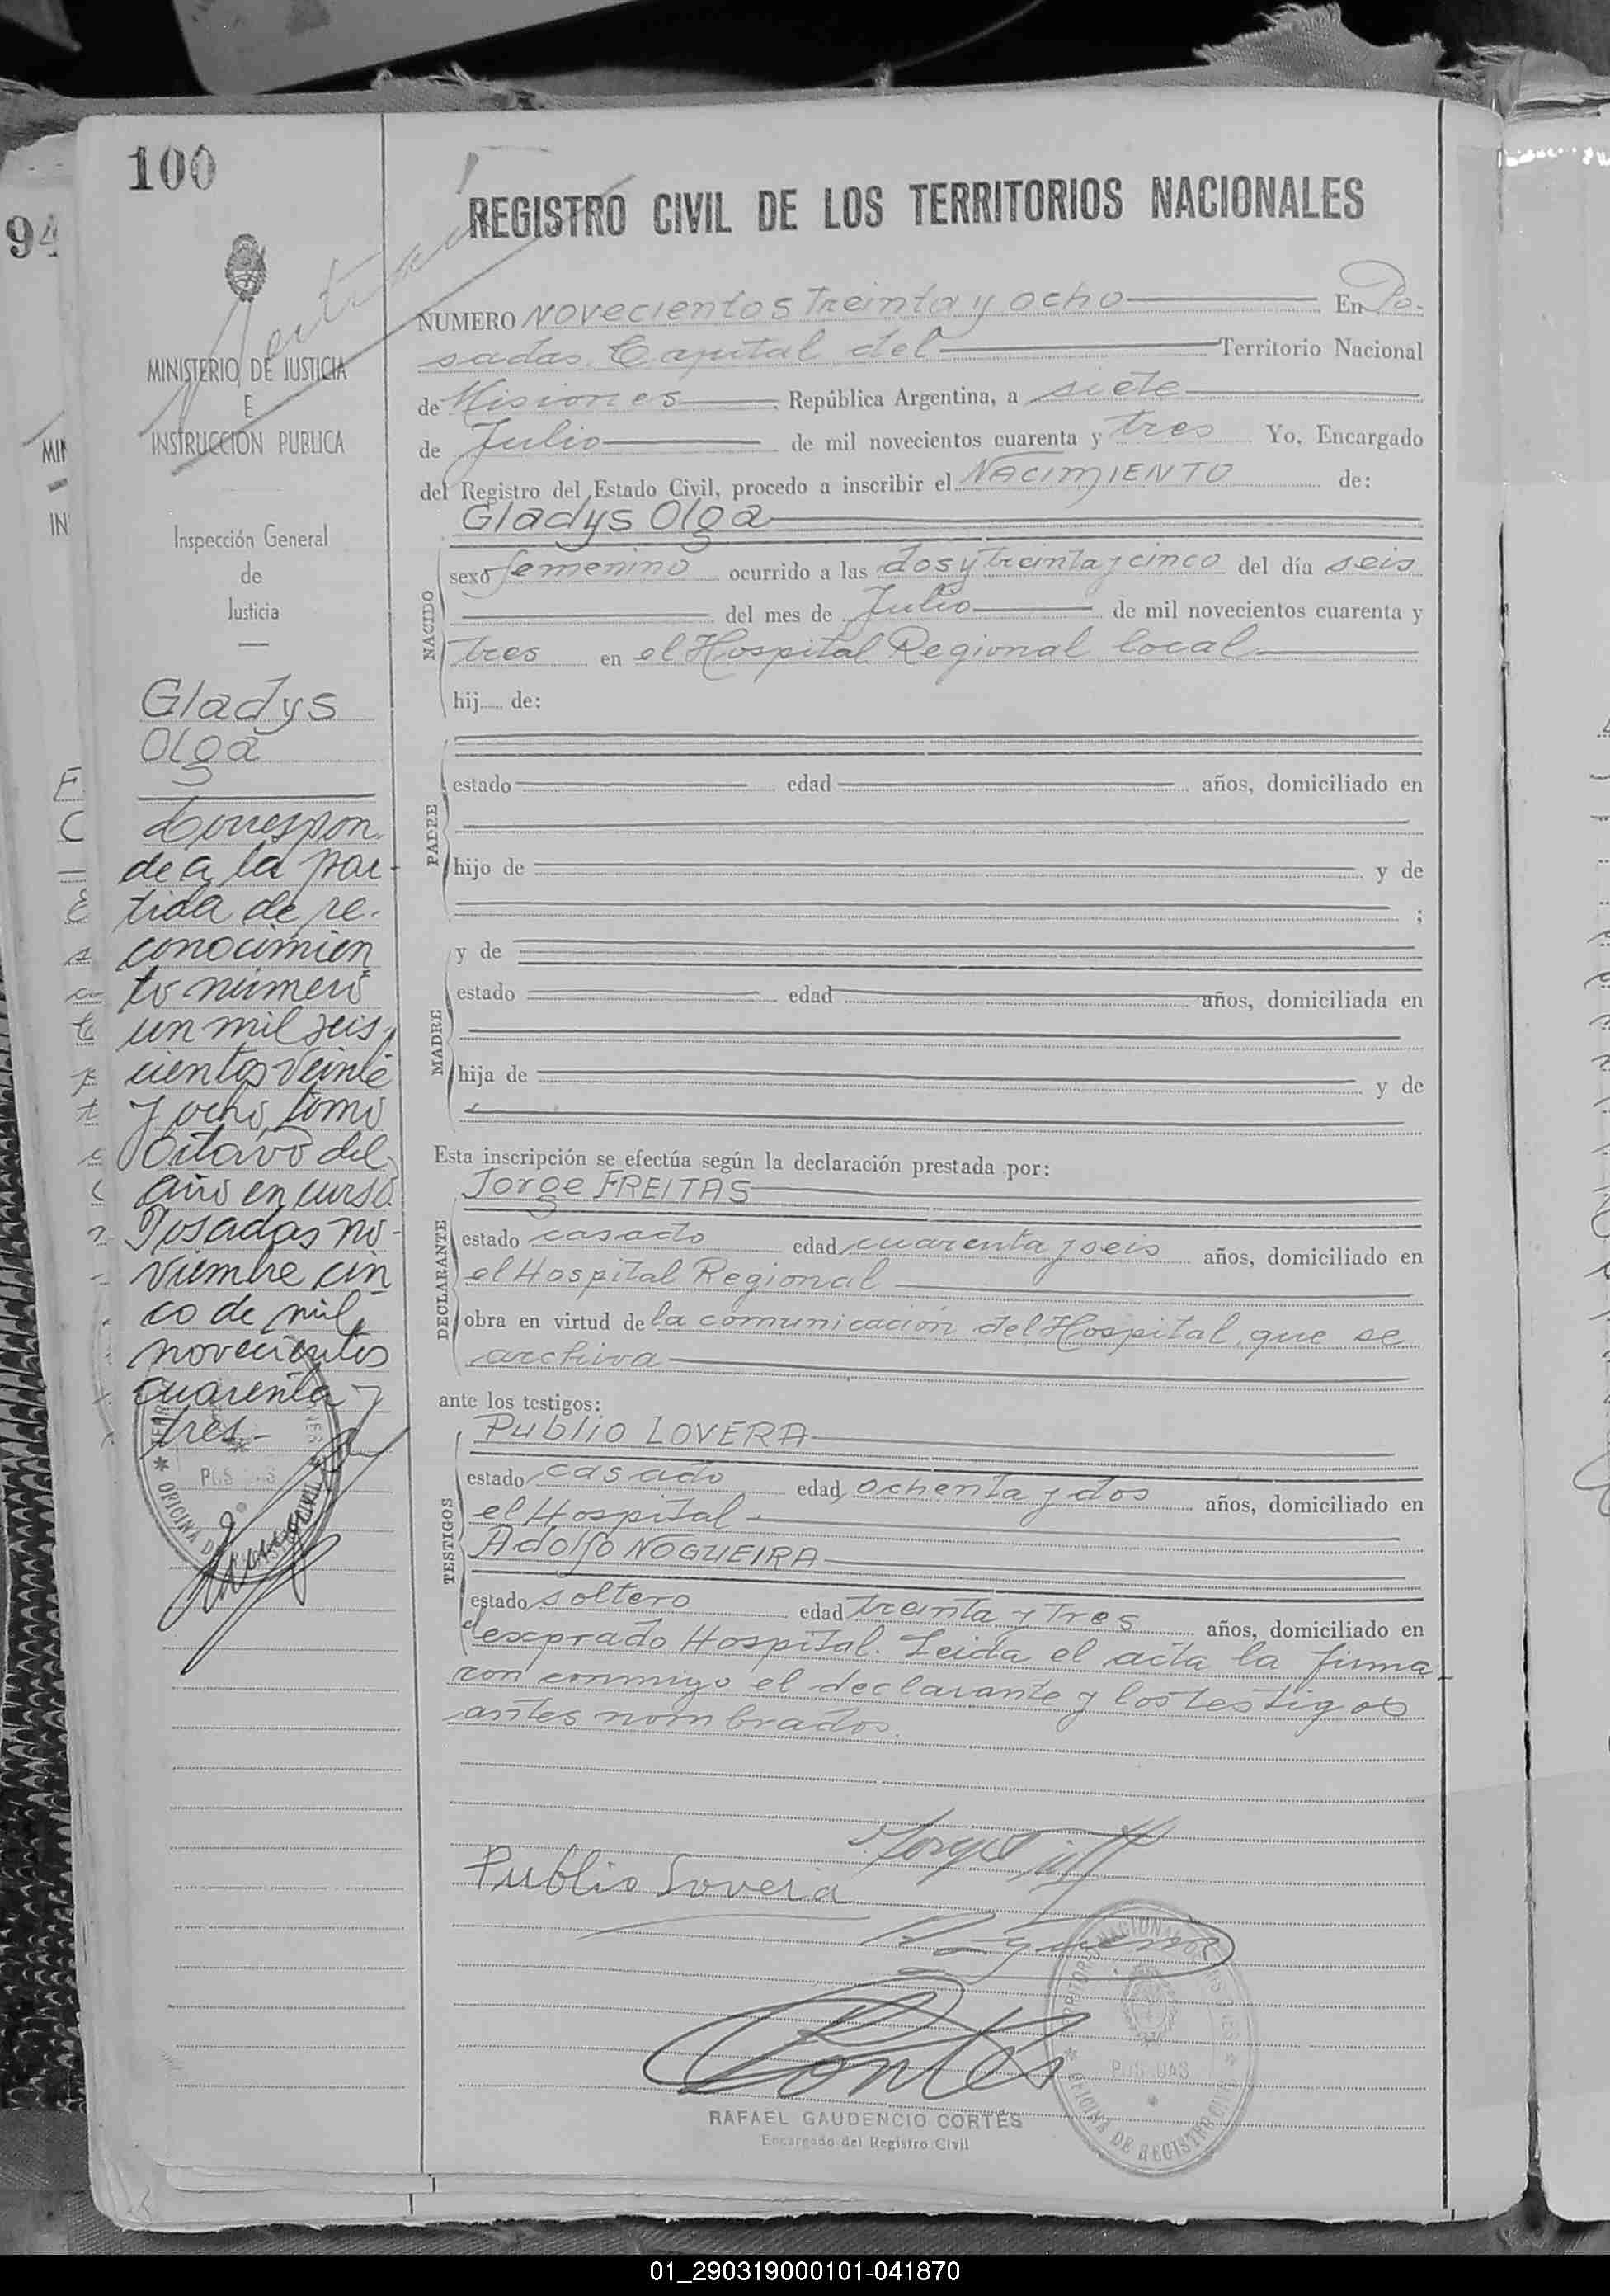 100
94
REGISTRO CIVIL DE LOS TERRITORIOS NACIONALES
MINISTERIO DE JUSTICIA
E
INSTRUCCION PUBLICA
Inspección General
de
Justicia
Gladys
Olga
Correspon
de a la par-
tida de re-
conocimien
to número
un mil seis
cientos veinte
y ocho, tomo
octavo del
año en curso.
Posadas no-
viembre cin
co de mil
novecientos
cuarenta y
tres.-
NUMERO Novecientos treinta y ocho En Po-
sadas, Capital del Territorio Nacional
de Misiones República Argentina, a siete
de Julio de mil novecientos cuarenta y tres Yo, Encargado
del Registro del Estado Civil, procedo a inscribir el NACIMIENTO de:
Gladys Olga
NACIDO
sexo femenino ocurrido a las dos y treinta y cinco del día seis
del mes de Julio de mil novecientos cuarenta y
tres en el Hospital Regional local
hij..... de:
PADRE
estado edad años, domiciliado en
hijo de y de
;
MADRE
y de
estado edad años, domiciliada en
hija de y de
Esta inscripción se efectúa según la declaración prestada por:
Jorge FREITAS
DECLARANTE
estado casado edad cuarenta y seis años, domiciliado en
el Hospital Regional
obra en virtud de la comunicación del Hospital, que se
archiva
ante los testigos:
Publio LOVERA
TESTIGOS
estado casado edad ochenta y dos años, domiciliado en
el Hospital
Adolfo NOGUEIRA
estado soltero edad treinta y tres años, domiciliado en
el exprado Hospital. Leida el acta la firma-
ron conmigo el declarante y los testigos
antes nombrados.
Publio Lovera
Cortés
POSADAS
OFICINA DE REGISTRO CIVIL
RAFAEL GAUDENCIO CORTÉS
Encargado del Registro Civil
01_290319000101-041870